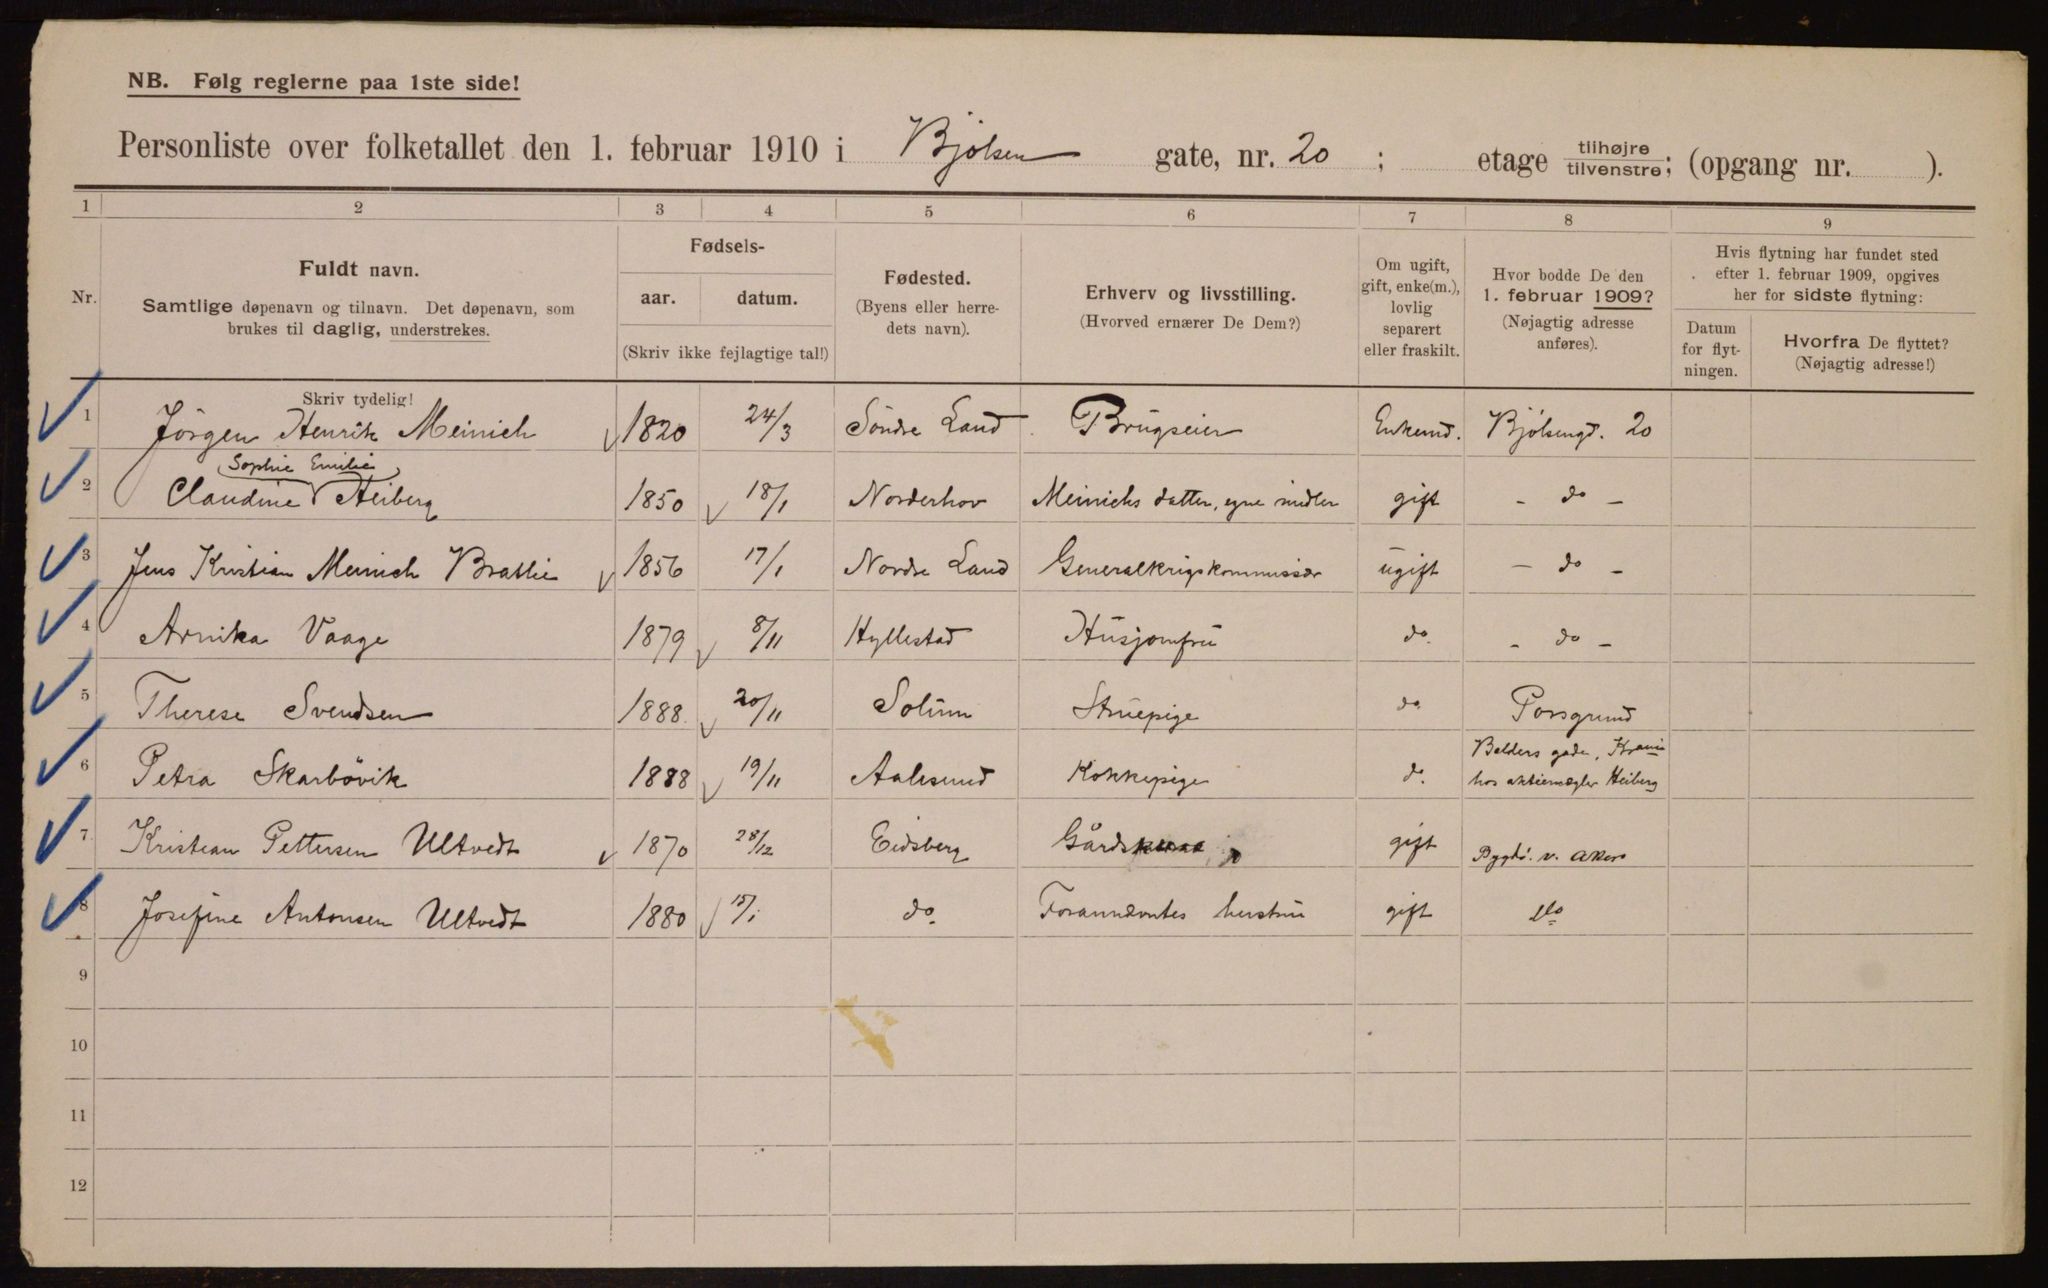 NB. Følg reglerne paa 1ste side!
Personliste over folketallet den 1. februar 1910 i Bjølsen gate, nr. 20 ; etage tilhøjre/tilvenstre; (opgang nr. ).
1 2 3 4 5 6 7 8 9
Nr.
Fuldt navn.
Samtlige døpenavn og tilnavn. Det døpenavn, som
brukes til daglig, understrekes.
Fødsels-
aar. datum.
(Skriv ikke fejlagtige tal!)
Fødested.
(Byens eller herre-
dets navn).
Erhverv og livsstilling.
(Hvorved ernærer De Dem?)
Om ugift,
gift, enke(m.),
lovlig
separert
eller fraskilt.
Hvor bodde De den
1. februar 1909?
(Nøjagtig adresse
anføres).
Hvis flytning har fundet sted
efter 1. februar 1909, opgives
her for sidste flytning:
Datum
for flyt-
ningen.
Hvorfra De flyttet?
(Nøjagtig adresse!)
Skriv tydelig!
1 Jörgen Henrik Meinich 1820 24/3 Söndre Land Brugseier Enkemd. Bjölsengd. 20
Sophie Emilie
2 Claudine Heiberg 1850 18/1 Norderhov Meinichs datter, egne midler gift - do -
3 Jens Kristian Meinich Bratlie 1856 17/1 Nordre Land Generalkrigskommissær ugift - do -
4 Arnika Vaage 1879 8/11 Hyllestad Husjomfru do. - do -
5 Therese Svendsen 1888 20/11 Solum Stuepige do Porsgrund
Balders gade,
6 Petra Skarbövik 1888 19/11 Aalesund Kokkepige do. hos aktiemægler Heiberg
7 Kristian Pettersen Ultvedt 1870 28/12 Eidsberg gift Bygdö. v. Aker
8 Josefine Antonsen Ultvedt 1880 15/1 do Forannævntes hustru gift do
9
10
11
12